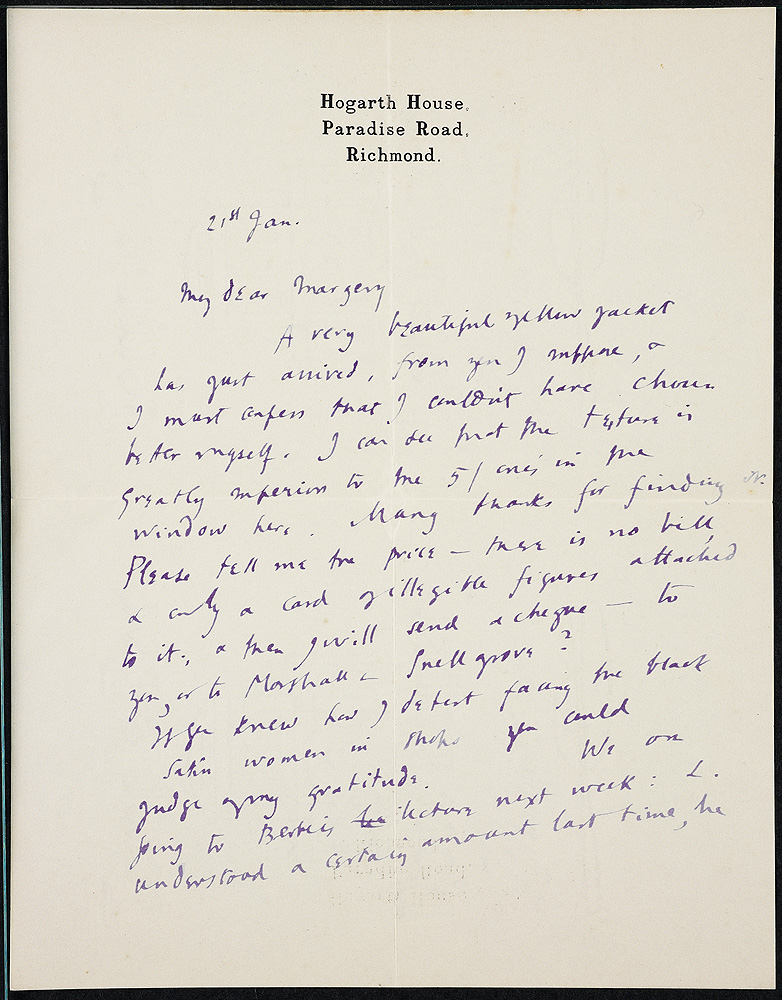 Hogarth House,
Paradise Road,
Richmond.
21st Jan.
My dear Margery
A very beautiful yellow jacket
has just arrived, from you I suppose, &
I must confess that I couldn't have chosen
better myself. I can see that the texture is
greatly superior to the 5/ ones in the
window here. Many thanks for finding it.
Please tell me the price — there is no bill,
& only a card of illegible figures attached
to it., & then I will send a cheque — to
you, or to Marshall & Snellgrove?
If you knew how I detest facing the black
satin women in shops you could
judge of my gratitude. We are
going to Bertie's lecture next week: L.
understood a certain amount last time, he